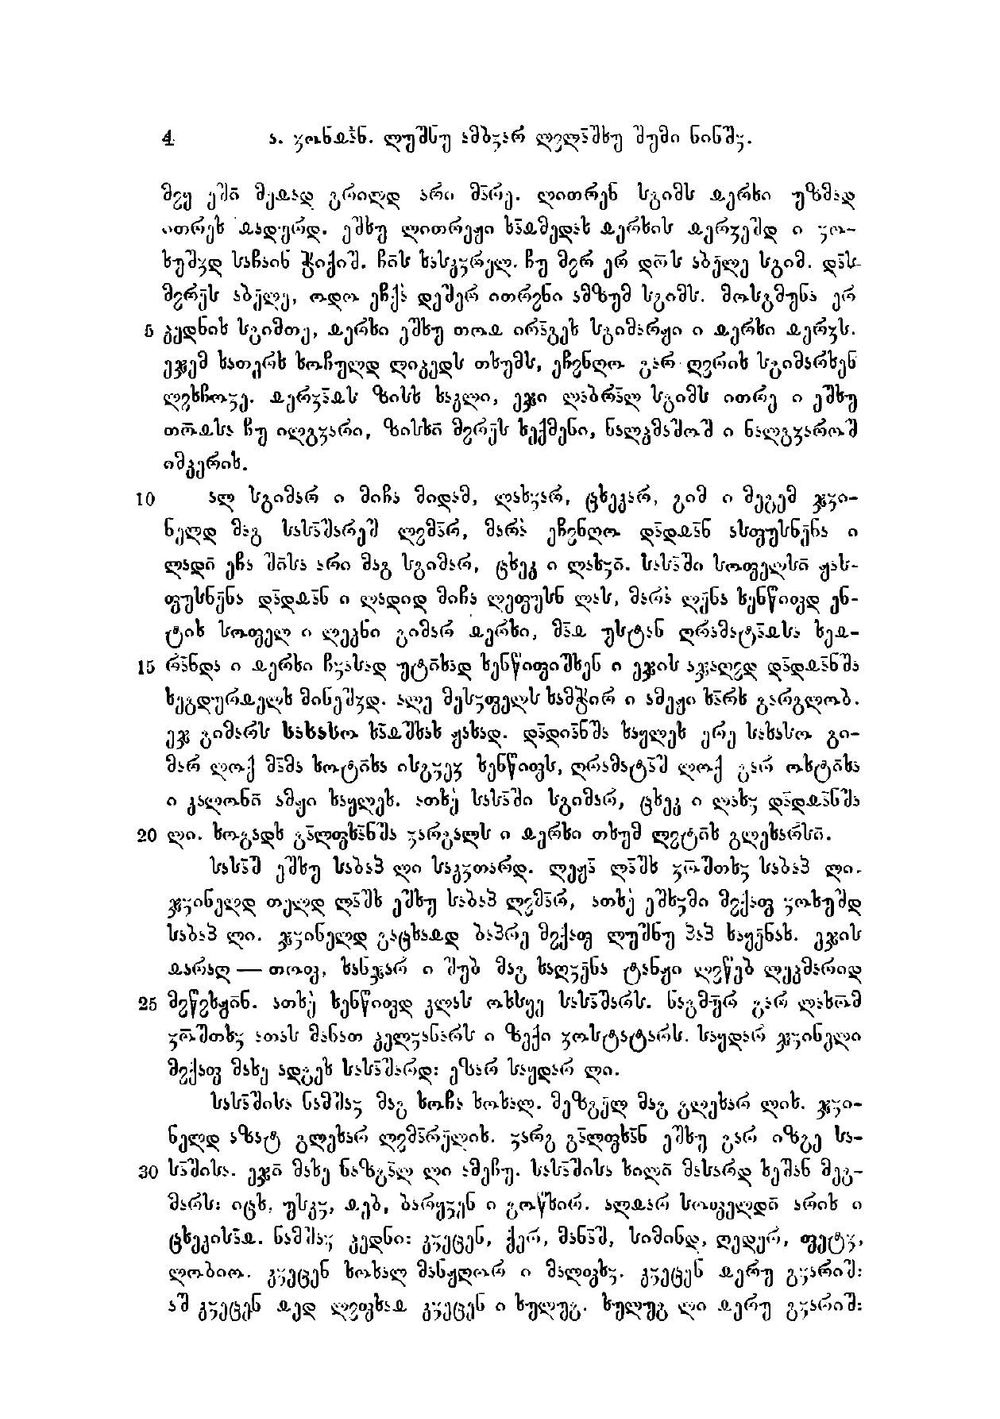 4 ა. ჳონჲა̈ნ. ლუშნუ ამბჳარ ღჷლა̈შხუ შუმი ნინშჳ.
მჷყ ეშა̄ მეჲად გრილდ არი მა̈რე. ლითრენ სგიმს ჲერხი უზმად
ითრეხ ჲადურდ. ეშხუ ლითრეჟი ხა̈ჲმედას ჲერხის ჲერჳეშდ ი ჳო-
ხუშჳდ საჩაინ ჭიქიშ. ჩი̄ს ხასკჳრელ. ჩუ მჷრ ერ დო̄ს აბე̄ლე სგიმ. დას-
მჷრე̄ს აბე̄ლე, ოდო ეჩქა̀ დეშერ ითრჷნი ამზუმ სგიმს. მოსგმუნა ერ
5 კედნის სგიმთე, ჲერხი ეშხუ თოჲ ირა̈გეს სგიმარჟი ი ჲერხი ჲერჳს.
ეჯემ ხათერს ხოჩულდ ლიკედს თხუმს, ეჩჷნღო გარ ღჷრის სგიმარხენ
ლჷხჩოჳე. ჲერჳა̈ჲს ზისხ ხაკლი, ეჯი ლაბრა̈ლ სგიმს ითრე ი ეშხუ
თო̄ჲსა ჩუ იღგჳარი, ზისხი̄ მჷრე̄ს ხექმენი, ნალკმაშო̄შ ი ნაღგჳარო̄შ
იმკერის.
10 ალ სგიმარ ი მიჩა მიდამ, ლახჳარ, ცხეკარ, გიმ ი მეგემ ჯჳი-
ნელდ მაგ სასა̈შარეშ ლჷმა̈რ, მარა̀ ეჩჷნღო და̈დჲა̈ნ ასფუსნე̄ნა ი
ლადი̄ ეჩა ში̄სა არი მაგ სგიმარ, ცხეკ ი ლახჳი̄. სასა̈ში სოფელსი̄ ჟას-
ფუსნე̄ნა და̈დჲა̈ნ ი ლადიდ მიჩა ლეფუსნ ლას, მარა̀ ღე̄ნა ხენწიფდ ენ-
ტის სოფელ ი ლეკნი გიმარ ჲერხი, მა̈ჲ უსტან ღრამატა̈ჲსა ხეჲ-
15 რა̈ნდა ი ჲერხი ჩჳასად უტი̄ხად ხენწიფიშხენ ი ეჯის აჯაღჷდ და̈დჲა̈ნშა
ხეგდურჲელს მინეშჳდ. ალე მესჳფელს ხამჭირ ი ამეჟი ხა̈რს გარგლობ.
ეჯ გიმარს სახასო ხა̈ჲშხას ჟახად. და̈დიანშა ხაყლეს ერე სახასო გი-
მარ ლოქ მა̈მა ხოტი̄ხა ისგჳეჯ ხენწიფს, ღრამატა̈შ ლოქ გარ ოხტი̄ხა
ი კალონი̄ ამჟი ხაყლეს. ათხე̀ სასა̈ში სგიმარ, ცხეკ ი ლახჳ და̈დჲა̈ნშა
20 ლი. ხოგადს გა̈ლფხა̈ნშა ჳარგალს ი ჲერხი თხუმ ღჷტი̄ს გლეხარსი̄.
სასა̈შ ეშხუ საბაპ ლი საკჳთარდ. ლეჟა̀ ლა̈შხ ჳო̄შთხჳ საბაპ ლი.
ჯჳინელდ თელდ ლა̈შხ ეშხუ საბაპ ლჷმა̈რ, ათხე̀ ეშხჳმი მჷქაფ ჳოხუშდ
საბაპ ლი. ჯჳინელდ გაცხაჲდ ბაპრე მჷქაფ ლუშნუ პაპ ხაყე̄ნახ. ეჯის
ჲარაღ — თოფ, ხანჯარ ი შუბ მაგ ხაღჳე̄ნა ტანჟი ლჷწებ ლეკმარიდ
25 მჷწესჟი̄ნ. ათხე̀ ხენწიფდ კლას ოხსყე სასა̈შარს. ნაგმუ̈რ გარ ლახო̄მ
ჳო̄შთხჳ ათას მანათ კელჳანარს ი ზექი ჳოსტატარს. საყდარ ჯჳინელი
მჷქაფ მახე ადგეხ სასა̈შარდ: ეზარ საყდარ ლი.
სასა̈შისა ნამშაჳ მაგ ხოჩა ხოხალ. მეზგე̄ლ მაგ გლეხარ ლის. ჯჳი-
ნელდ აზატ გლეხარ ლჷმა̈რე̄ლის. ჳარგ გა̈ლფხა̈ნ ეშხუ გარ იზგე სა-
30 სა̈შისა. ეჯი̄ მახე ნაზგა̈ლ ლი ამეჩუ. სასა̈შისა ხილი̄ მასარდ ხეშან მეგ-
მარს: იცხ, უსკჳ, ჲებ, ბარყჳენ ი გოწხირ. ალჲარ სოფელდი̄ არის ი
ცხეკისა̈ჲ. ნამშაჳ კედნი: კჳეცენ, ქერ, მანა̈შ, სიმინდ, ღედერ, ფეტჳ,
ლობიო. კჳეცენ ხოხალ მანჟღორ ი მალფხჳ. კჳეცენ ჲერუ გჳარიშ:
აშ კჳეცენ ჲედ ლჷფხაჲ კჳეცენ ი ხულუგ. ხულუგ ლი ჲერუ გჳარიშ: